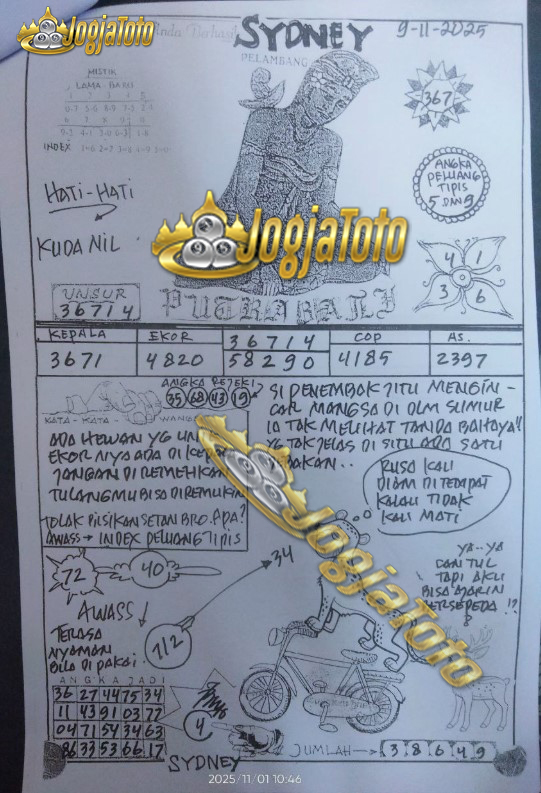 JogjaToto
Anda Berhasil
SYDNEY
9-11-2025
PELAMBANG
MISTIK
LAMA BARU
367
INDEX
ANGKA
PELUANG
TIPIS
5 DAN 9
HATI-HATI
KUDA NIL
JogjaToto
4 1
3 6
UNSUR
36714
PUTRA BALI
KEPALA EKOR 36714 COP AS.
3671 4820 58290 4185 2397
ANGKA REJEKI?
35 68 43 19
KATA-KATA-
SI PENEMBAK JITU MENGIN-
CAR MANGSA DI DLM SUMUR
IA TAK MELIHAT TANDA BAHAYA!!
YG TAK JELAS DI SITU ADA SATU
ADA HEWAN YG
EKOR NYA ADA DI
JANGAN DI REMEHKAN
TULANGMU BISA DI REMUKIN
TOLAK BISIKAN SETAN BRO. APA?
AWASS → INDEX PELUANG TIPIS
RUSA KALI
DIAM DI TEMPAT
KALAU TIDAK
KALI MATI
JogjaToto
72
40
34
YA-YA
DAN TUL
TAPI AKU
BISA AJARIN
BERSEPEDA !?
AWASS!
TERASA
NYAMAN
BILA DI PAKAI.
7/2
ANGKA JADI
36 27 44 75 34
11 43 91 03 77
04 71 54 34 63
86 33 53 66 17
4
JUMLAH
3 8 6 4 9
SYDNEY
2025/11/01 10:46